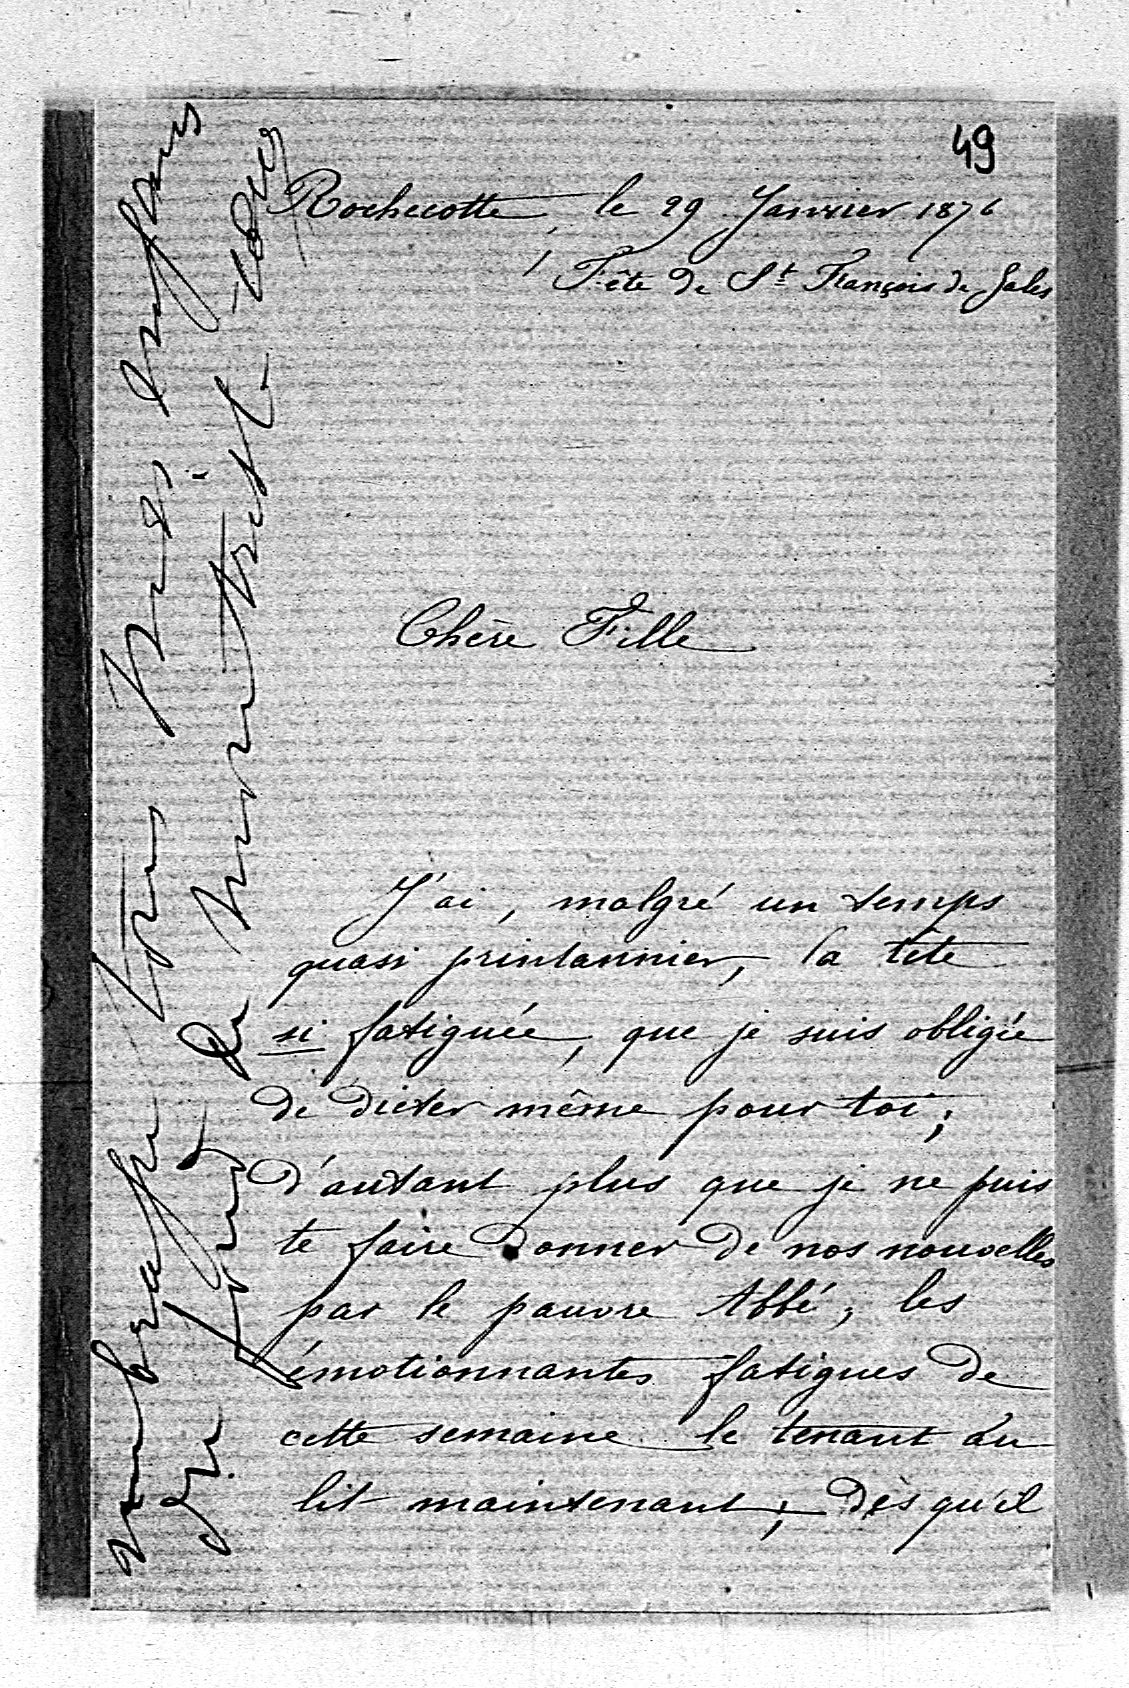 49
Rochecotte, le 29 Janvier 1876
Fête de St François de Sales
Chère Fille
J'ai, malgré un temps
quasi printannier, la tête
si fatiguée, que je suis obligée
de dicter même pour toi;
d'autant plus que je ne puis
te faire donner de nos nouvelles
par le pauvre Abbé, les
émotionnantes fatigues de
cette semaine le tenant au
lit maintenant; dès qu'il
tous
Je de mon triste